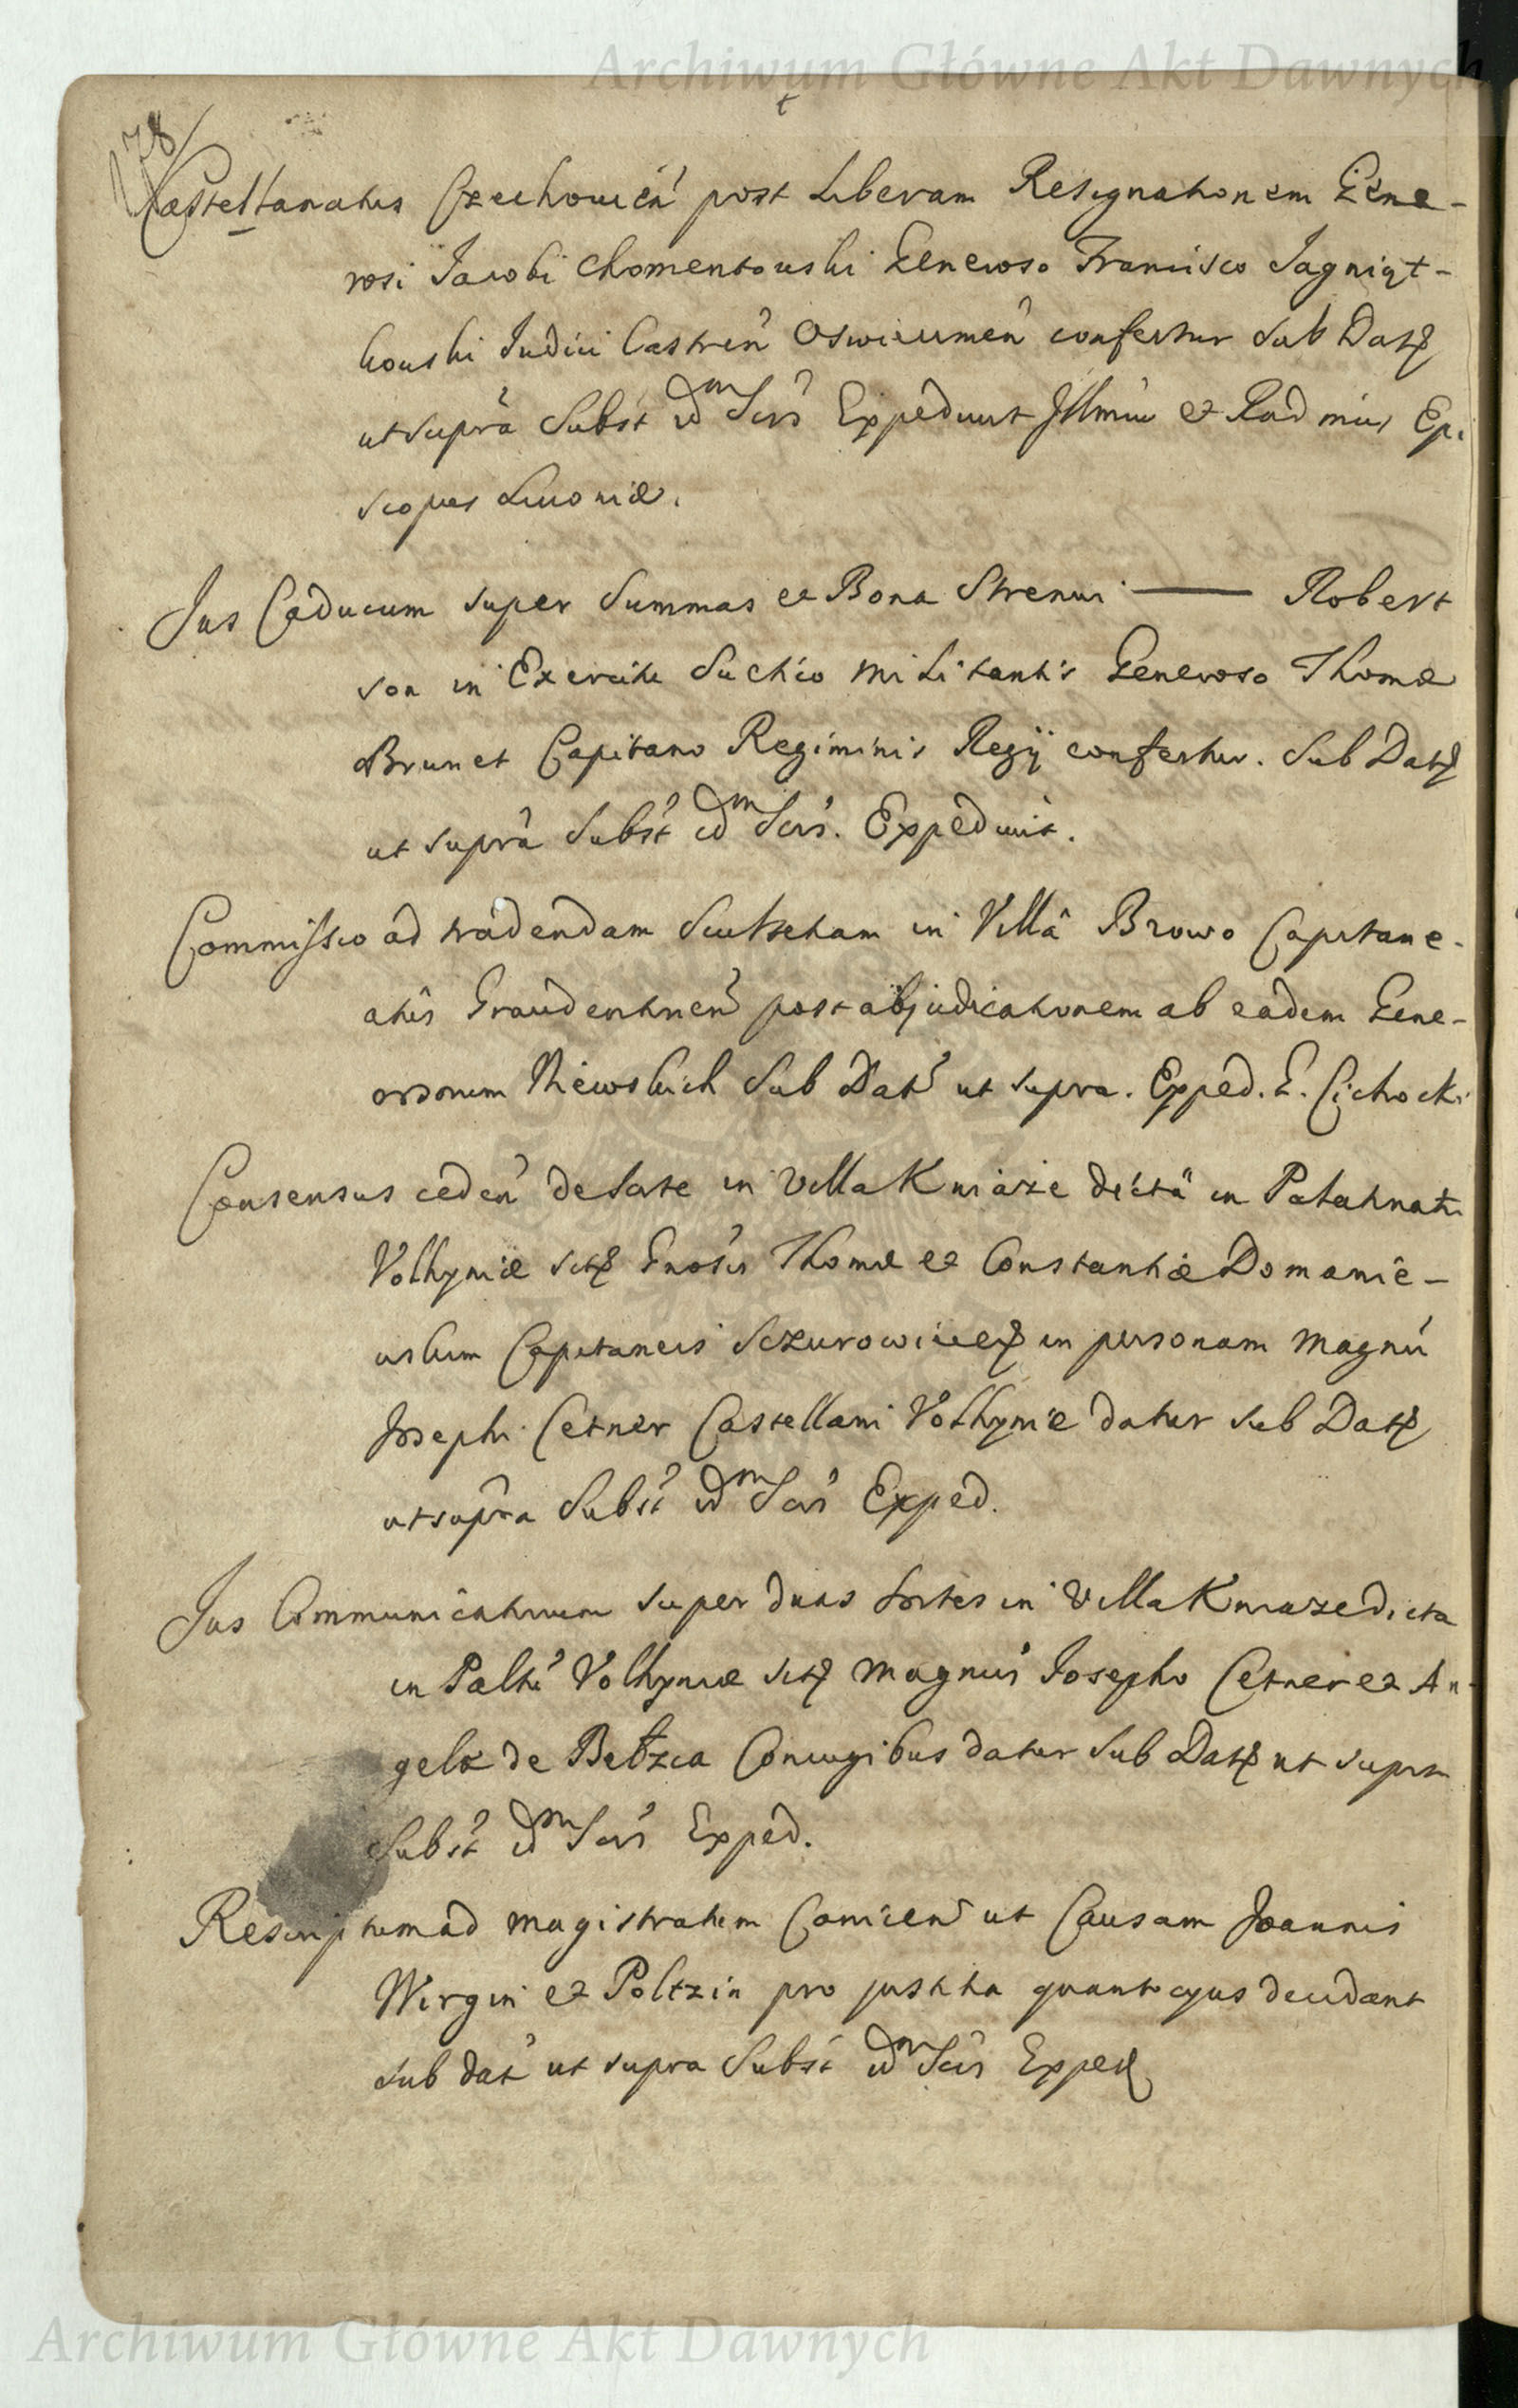 Archiwum Główne Akt Dawnych
178
Castellanatus Czechovień post Liberam Resignationem Gene-
rosi Jacobi Chomentowski Generoso Francisco Jagniąt-
kowski Judici Castreń Oswiecimeń confertur Sub Datt
ut supra Subst idm Scis Expeduut Illmus et Rndmus Epi
scopus Livoniæ.
Jus Caducum super Summas et Bona Strenui —— Robert
son in Exercitu Suetico Militantis Generoso Thomæ
Brunet Capitano Regiminis Regij confertur. Sub Datt
ut supra Subst idm Scis. Expeduit.
Commissio ad tradendam Scultetiam in Villâ Browo Capitane-
atûs Graudentineń post abjudicationem ab eadem Gene-
rosorum Niewskich Sub Dat ut supra. Exped. G. Cichocki
Consensus cedeń de Sorte in Villa Kniaże dictâ in Palatinatu
Volhyniæ sitt Gnosis Thomæ et Constantiæ Domanie-
wskim Capitaneis Sczurowicett in personam Magnii
Josephi Cetner Castellani Volhyniæ datur sub Datt
ut supra Subst idm Scis Exped.
Jus Communicativum super duas Sortes in Villa Kniaze dicta
in Paltu Volhyniæ sitt Magnis Josepho Cetner et An-
gelæ de Bełzca Conjugibus datur Sub Datt ut supra
Subst idm Scis Exped.
Rescriptum ad Magistratum Conicen ut Causam Joannis
Wirgin et Poltzin pro justitia quantocyus decidant
sub dat ut supra Subst idm Scis Exped
Archiwum Główne Akt Dawnych